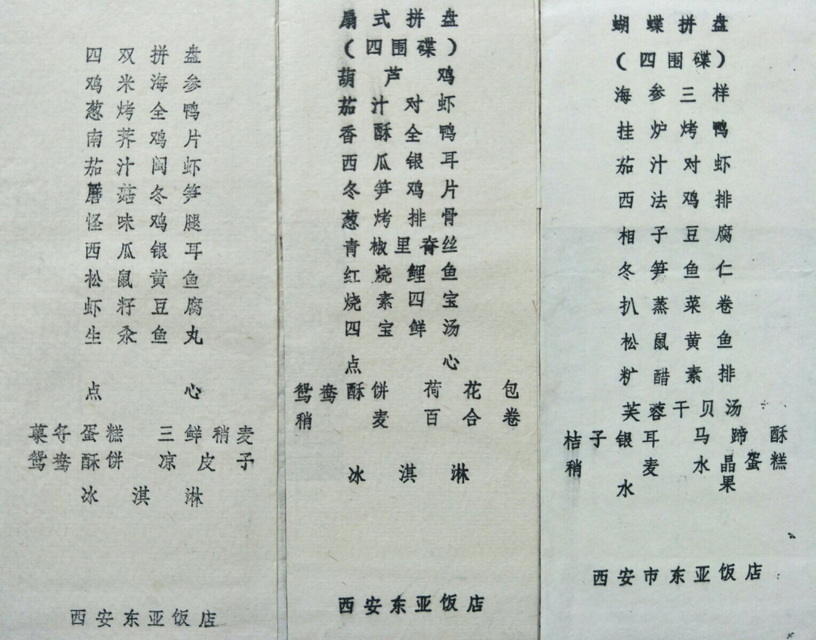 四双拼盘
鸡米海参
葱烤全鸭
南荠鸡片
茄汁闷虾
蘑菇冬笋
怪味鸡腿
西瓜银耳
松鼠黄鱼
虾籽豆腐
生汆鱼丸
点心
蛋糕 三鲜稍麦
鸳鸯酥饼 凉皮子
冰淇淋
西安东亚饭店
扇式拼盘
(四围碟)
葫芦鸡
茄汁对虾
香酥全鸭
西瓜银耳
冬笋鸡片
葱烤排骨
青椒里脊丝
红烧鲤鱼
烧素四宝
四宝鲜汤
点心
鸳鸯酥饼 荷花包
稍麦 百合卷
冰淇淋
西安东亚饭店
蝴蝶拼盘
(四围碟)
海参三样
挂炉烤鸭
茄汁对虾
西法鸡排
相子豆腐
冬笋鱼仁
扒蒸菜卷
松鼠黄鱼
醋素排
芙蓉干贝汤
桔子银耳 马蹄酥
稍麦 水晶蛋糕
水果
西安市东亚饭店